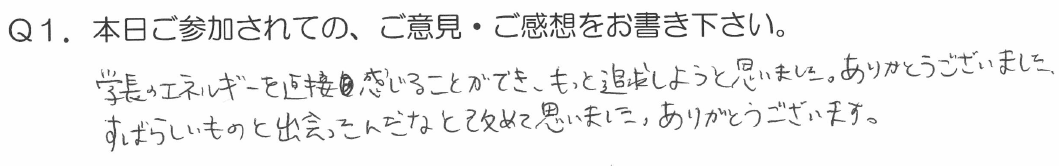 Q1．本日ご参加されての、ご意見・ご感想をお書き下さい。
学長のエネルギーを直接感じることができ、もっと追求しようと思いました。ありがとうございました、
すばらしいものと出会ってんだなと改めて思いました，ありがとうございます。